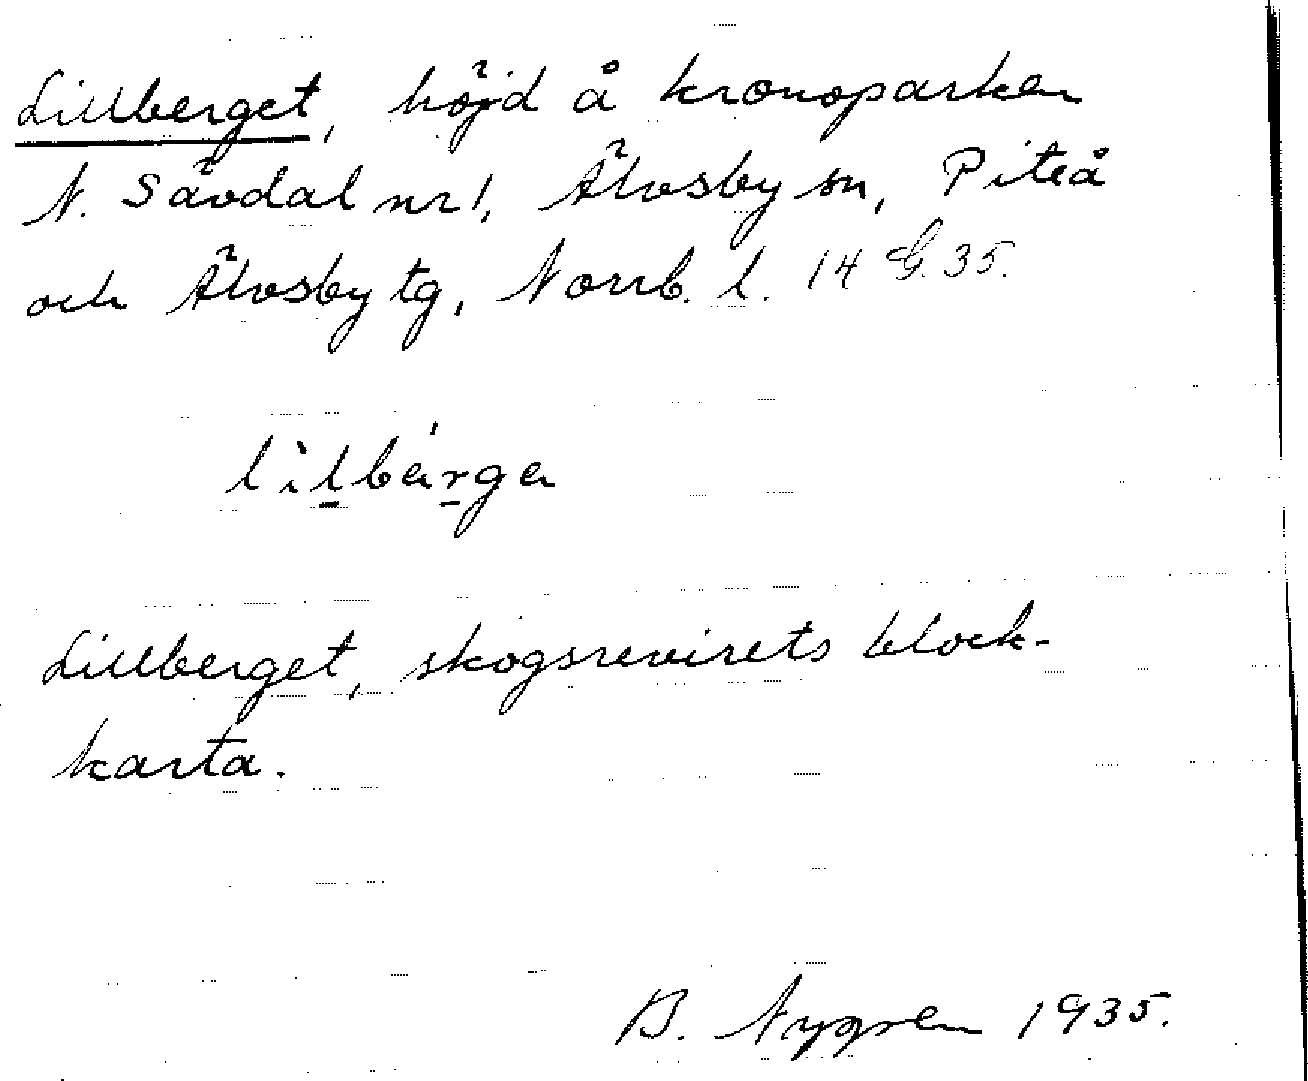 Lillberget, höjd å kronoparken
N. Sävdal nr 1, Älvsby sn, Piteå
och Älvsby tg, Norrb. l. 14 G. 35.
lìlbárga
Lillberget, skogsrevirets block-
karta.
B. Nygren 1935.